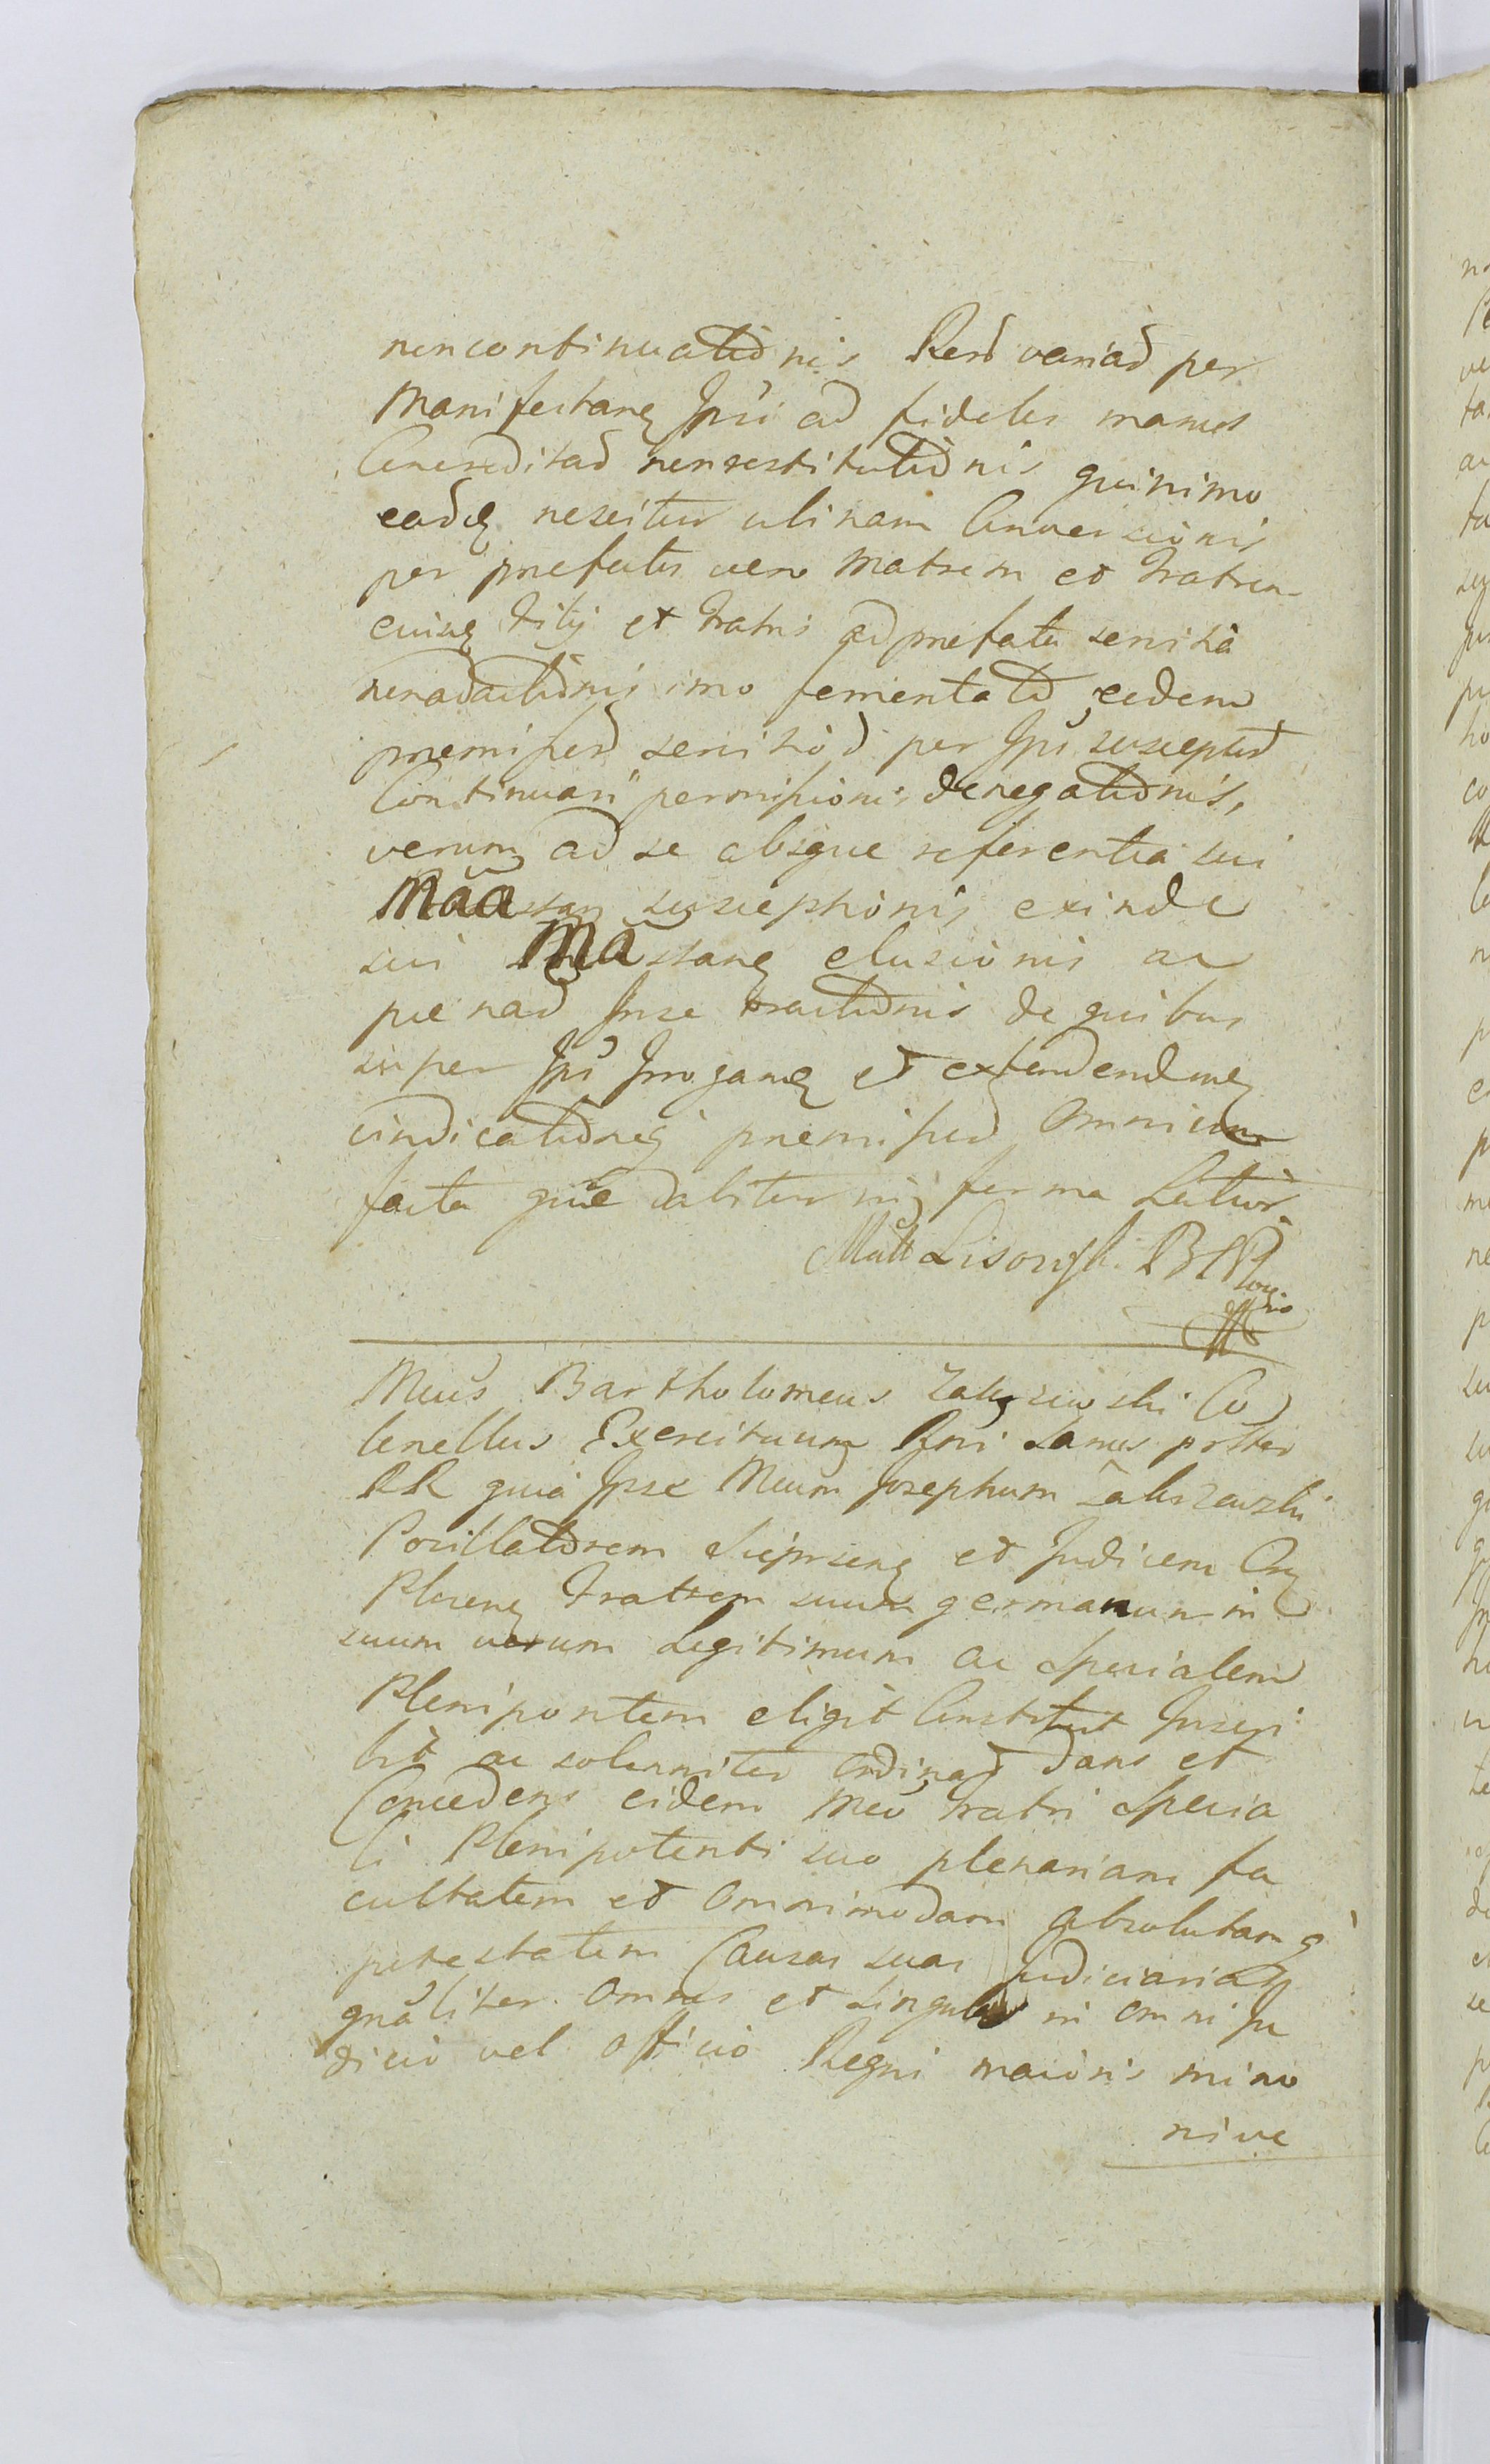 noncontinuationis Rerũ variaȓ per
Manifestanꝫ Ipsi ad fideles manus
Concreditaȓ nonrestitutionis quinimo
eaȓꝫ nescitur ubinam Conversionis
per prefatos vero Matrem et Fratrem
cuiusꝫ Filij et Fratris ad prefata servitia
imo eedem
premissoȓ servitioȓ per Ipsũ susceptoȓ
Continuari permissionis denegationis,
verumꝫ ad se absque referentia sui
susceptionis exinde
sui elusionis ac
poenaȓ In se tractionis de quibus
super Ipsi Irroganꝫ et extendendisꝫ
vindicationesꝫ premissoȓ omnium
facta quae dabitur in forma Latior.
Matt Lisowski
Mcus Bartholomeus Zaluzewski Co
lonellus Exercituum Rgni Sanus poster
RR quia Ipse Mcum Josephum Zaluzewski
Pocillatorem Sieprcenꝫ et Judicem
Plocenꝫ Fratrem suum germanum in
suum verum Legitimum ac Specialem
Plenipontem eligit Constituit Inscri
bit ac solenniter ordinat dans et
Concedens eidem Mco Fratri Specia
li Plenipotenti suo plenariam fa
cultatem et omnimodam absolutam q
potestatem Causas suas Judiciarias
gnãliter omnes et singulas in omni Ju
dicio vel officio Regni maioris mino
rive